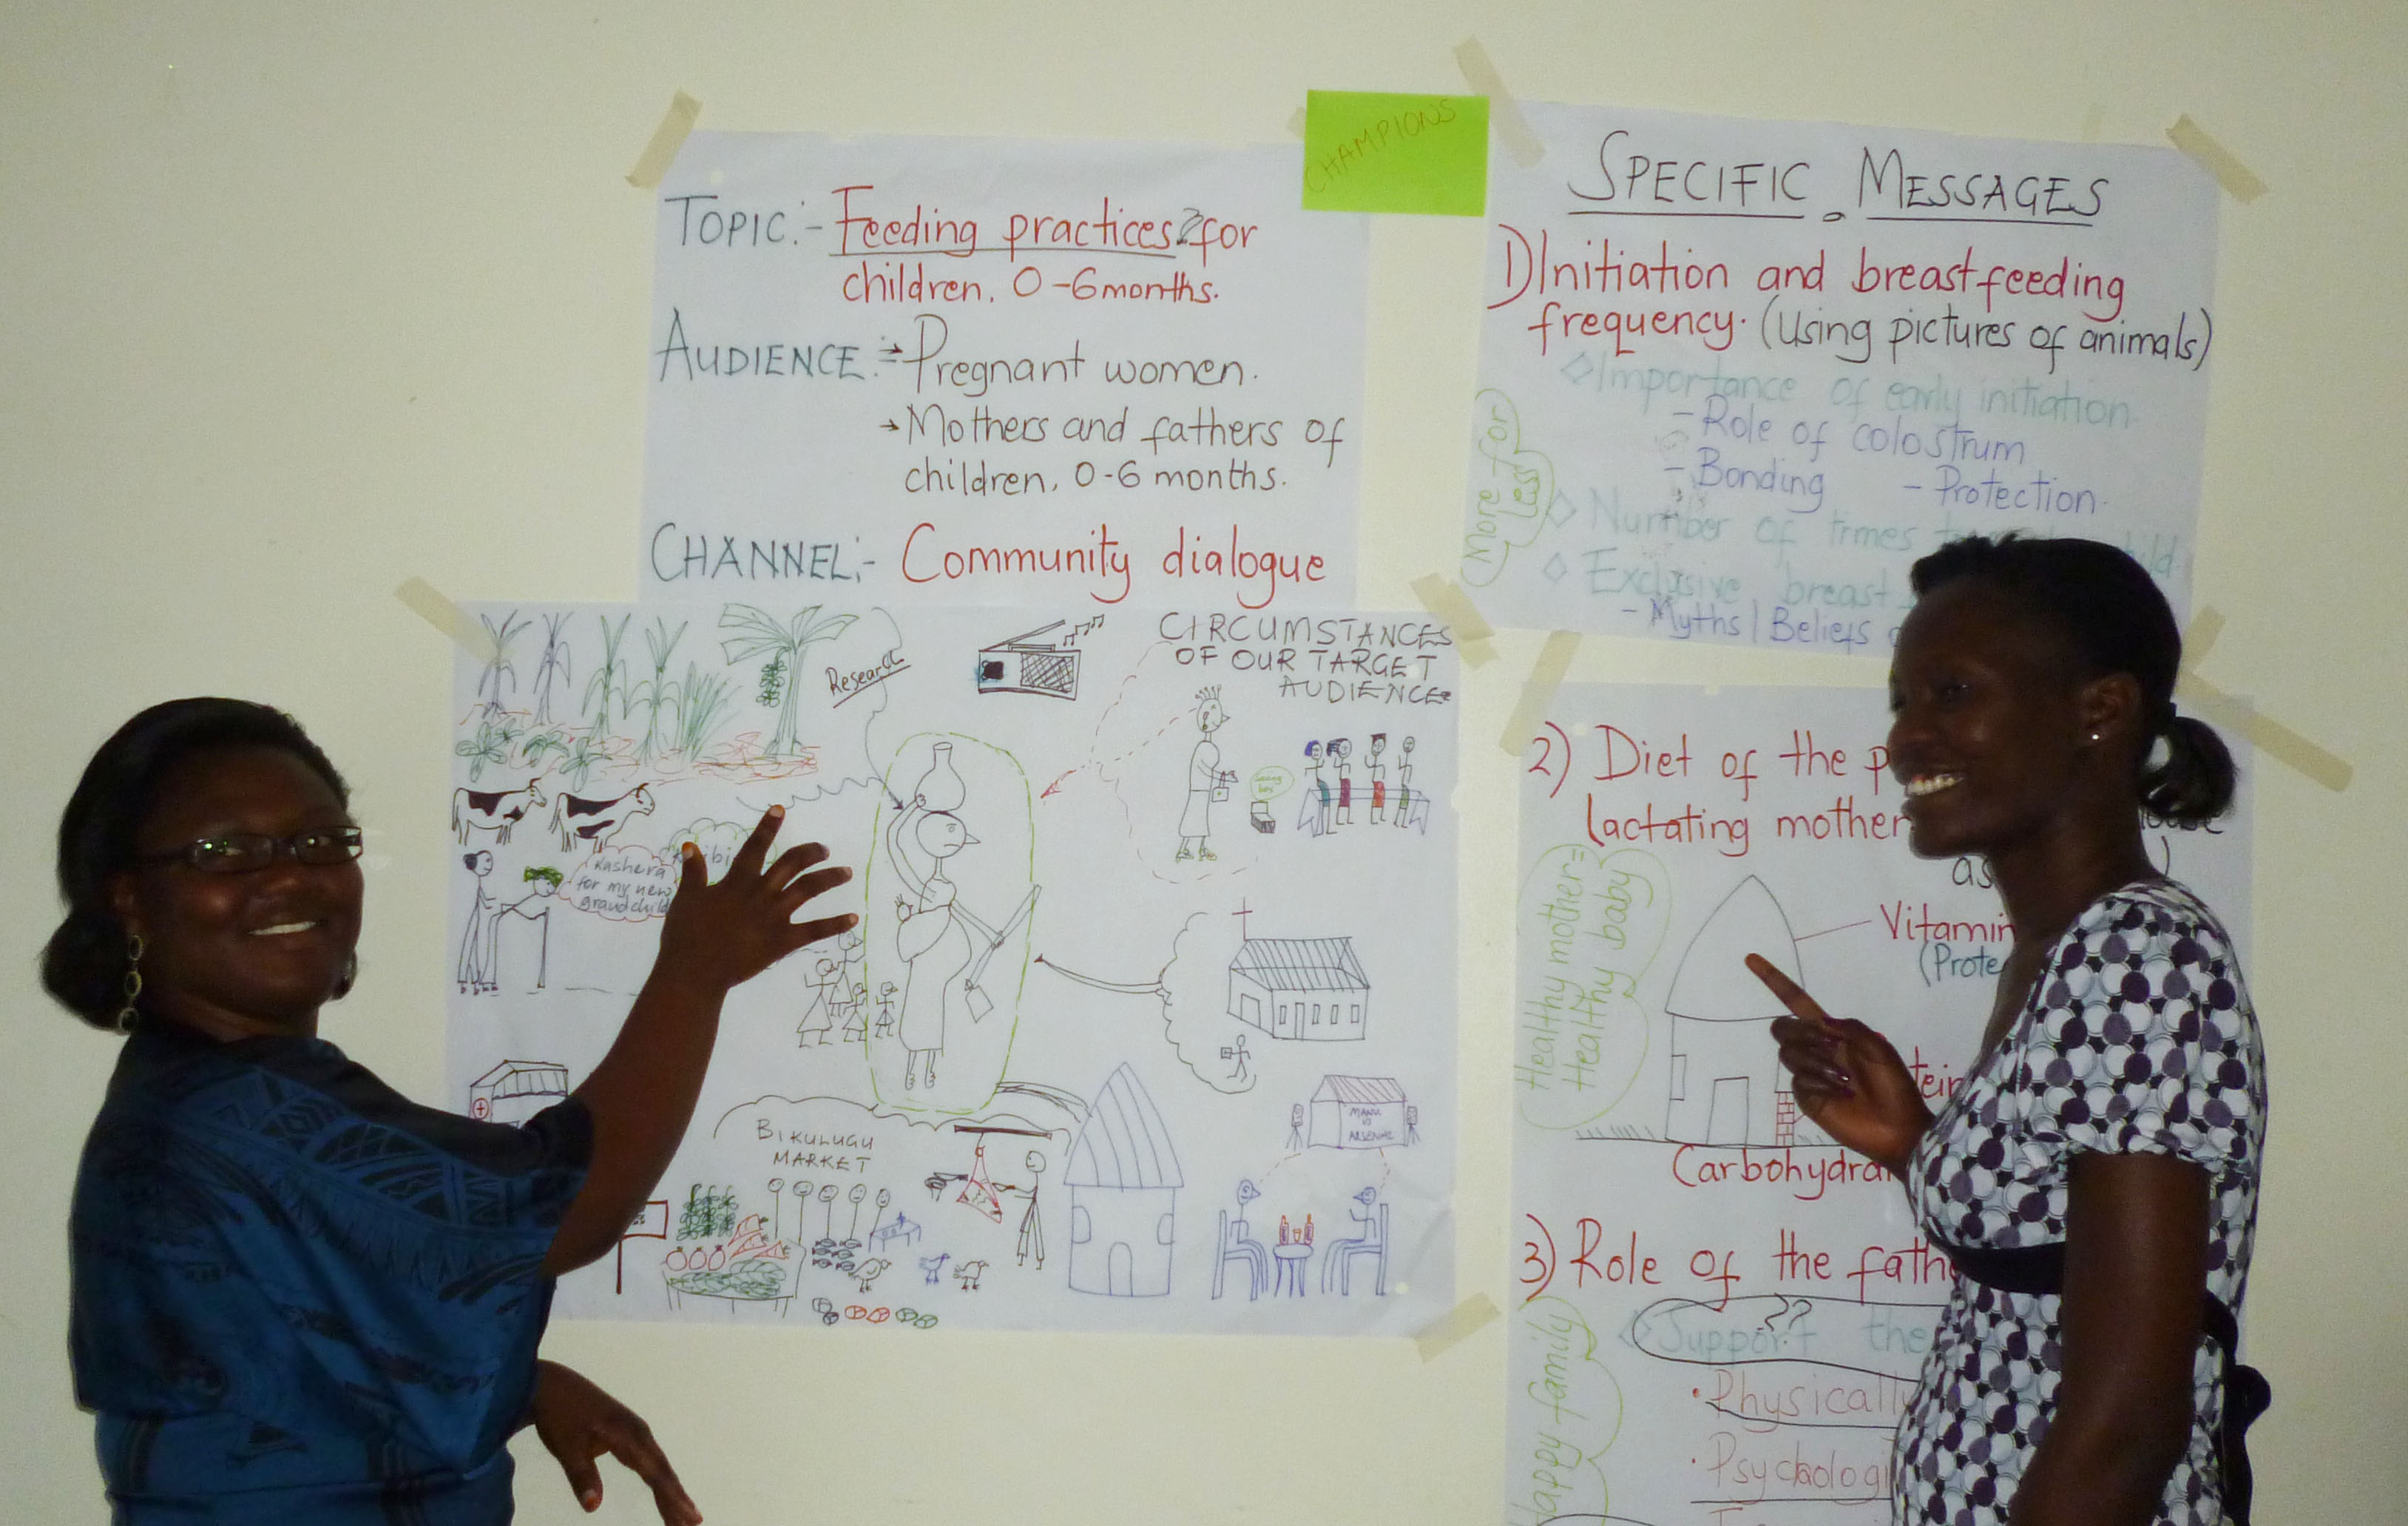 CHAMPIONS
TOPIC:- Feeding practices for
children, 0-6 months.
AUDIENCE:- → Pregnant women.
→ Mothers and fathers of
children, 0-6 months.
CHANNEL:- Community dialogue
Research
CIRCUMSTANCES
OF OUR TARGET
AUDIENCE
Kashera
for my new
grandchild
BIKULUGU
MARKET
MANU
VS
ARSENAL
SPECIFIC MESSAGES
1) Initiation and breastfeeding
frequency. (Using pictures of animals)
◇ Importance of early initiation
- Role of colostrum
- Bonding - Protection.
◇ Number of times
◇ Exclusive breast
- Myths | Beliefs
More for
less
2) Diet of the
lactating mother
as
Healthy mother =
Healthy baby
Vitamin
Carbohydra
3) Role of the fath
??
◇ Support the
• Physically
• Psychologi
Happy family